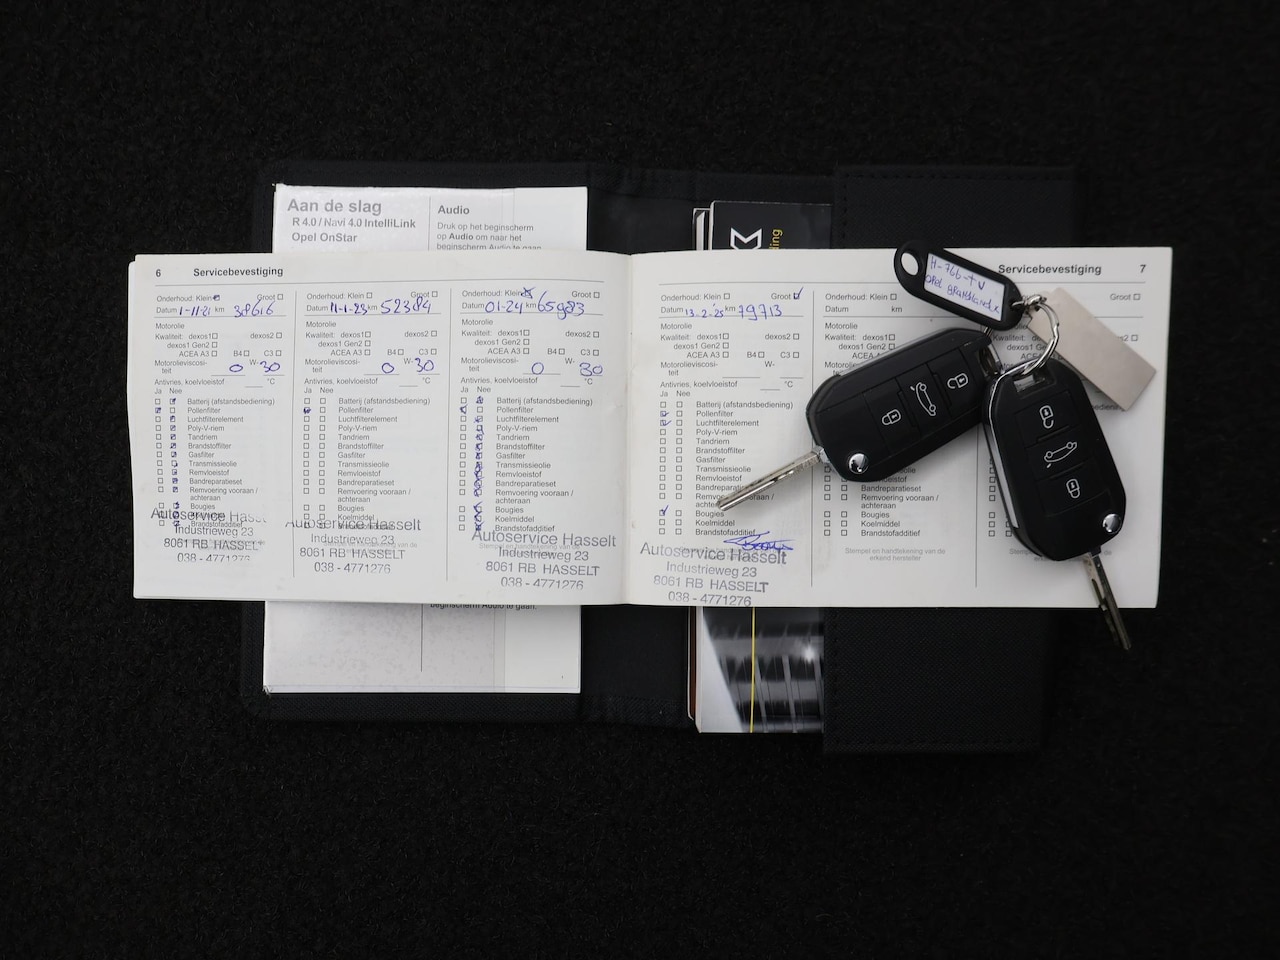 Aan de slag
R 4.0 / Navi 4.0 IntelliLink
Opel OnStar
Audio
Druk op het beginscherm
op Audio om naar het
beginscherm Audio te gaan.
6 Servicebevestiging
Onderhoud: Klein Groot
Datum 1-11-21 km 38616
Motorolie
Kwaliteit: dexos1 dexos2
dexos1 Gen2
ACEA A3 B4 C3
Motorolieviscosi-
teit 0 W- 30
Antivries, koelvloeistof °C
Ja Nee
Batterij (afstandsbediening)
Pollenfilter
Luchtfilterelement
Poly-V-riem
Tandriem
Brandstoffilter
Gasfilter
Transmissieolie
Remvloeistof
Bandreparatieset
Remvoering vooraan /
achteraan
Bougies
Koelmiddel
Brandstofadditief
Autoservice Hasselt
Industrieweg 23
8061 RB HASSELT
038 - 4771276
Onderhoud: Klein Groot
Datum 11-1-23 km 52384
Motorolie
Kwaliteit: dexos1 dexos2
dexos1 Gen2
ACEA A3 B4 C3
Motorolieviscosi-
teit 0 W- 30
Antivries, koelvloeistof °C
Ja Nee
Batterij (afstandsbediening)
Pollenfilter
Luchtfilterelement
Poly-V-riem
Tandriem
Brandstoffilter
Gasfilter
Transmissieolie
Remvloeistof
Bandreparatieset
Remvoering vooraan /
achteraan
Bougies
Koelmiddel
Brandstofadditief
Autoservice Hasselt
Industrieweg 23
8061 RB HASSELT
038 - 4771276
Onderhoud: Klein Groot
Datum 01-24 km 65983
Motorolie
Kwaliteit: dexos1 dexos2
dexos1 Gen2
ACEA A3 B4 C3
Motorolieviscosi-
teit 0 W- 30
Antivries, koelvloeistof °C
Ja Nee
Batterij (afstandsbediening)
Pollenfilter
Luchtfilterelement
Poly-V-riem
Tandriem
Brandstoffilter
Gasfilter
Transmissieolie
Remvloeistof
Bandreparatieset
Remvoering vooraan /
achteraan
Bougies
Koelmiddel
Brandstofadditief
Autoservice Hasselt
Industrieweg 23
8061 RB HASSELT
038 - 4771276
Servicebevestiging 7
Onderhoud: Klein Groot
Datum 13-2-'25 km 79713
Motorolie
Kwaliteit: dexos1 dexos2
dexos1 Gen2
ACEA A3 B4 C3
Motorolieviscosi-
teit W-
Antivries, koelvloeistof °C
Ja Nee
Batterij (afstandsbediening)
Pollenfilter
Luchtfilterelement
Poly-V-riem
Tandriem
Brandstoffilter
Gasfilter
Transmissieolie
Remvloeistof
Bandreparatieset
achteraan
Bougies
Koelmiddel
Brandstofadditief
Autoservice Hasselt
Industrieweg 23
8061 RB HASSELT
038 - 4771276
Onderhoud: Klein
Datum km
Motorolie
Kwaliteit: dexos1
dexos1 Gen2
Remvloeistof
Bandreparatieset
Remvoering vooraan /
achteraan
Bougies
Koelmiddel
Brandstofadditief
Stempel en handtekening van de
erkend hersteller
Groot
H-766-TV
Opel Grandlandx